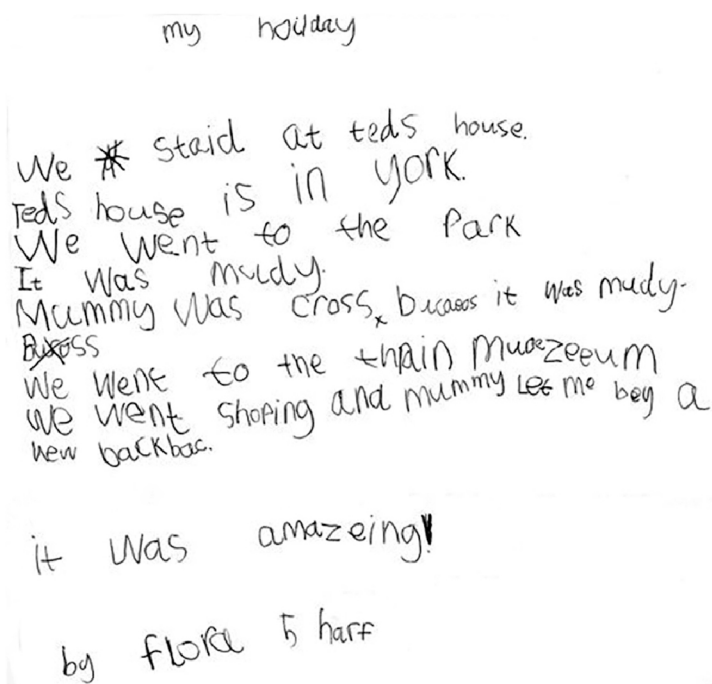 my holiday
We staid at teds house.
Teds house is in york.
We went to the Park
It was mudy.
Mummy was cross, becaoos it was mudy.
We went to the thain muezeeum
we went shoping and mummy Let me bey a
new backbac.
it was amazeing!
by flora 5 harf